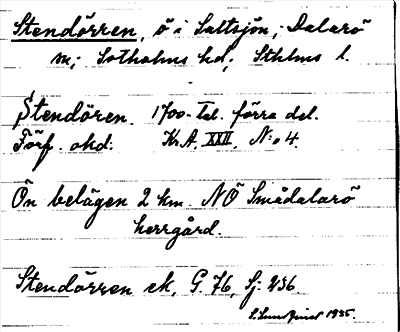 Stendörren, ö i Saltsjön; Dalarö
sn; Sotholms hd; Sthlms l.
Stendören. 1700-tal. förra del.
Förf. okd. Kr.A. XXII, N:o 4.
Ön belägen 2 km. NÖ Smådalarö
herrgård.
Stendörren ek, G. 76, Sj: 236
1935.